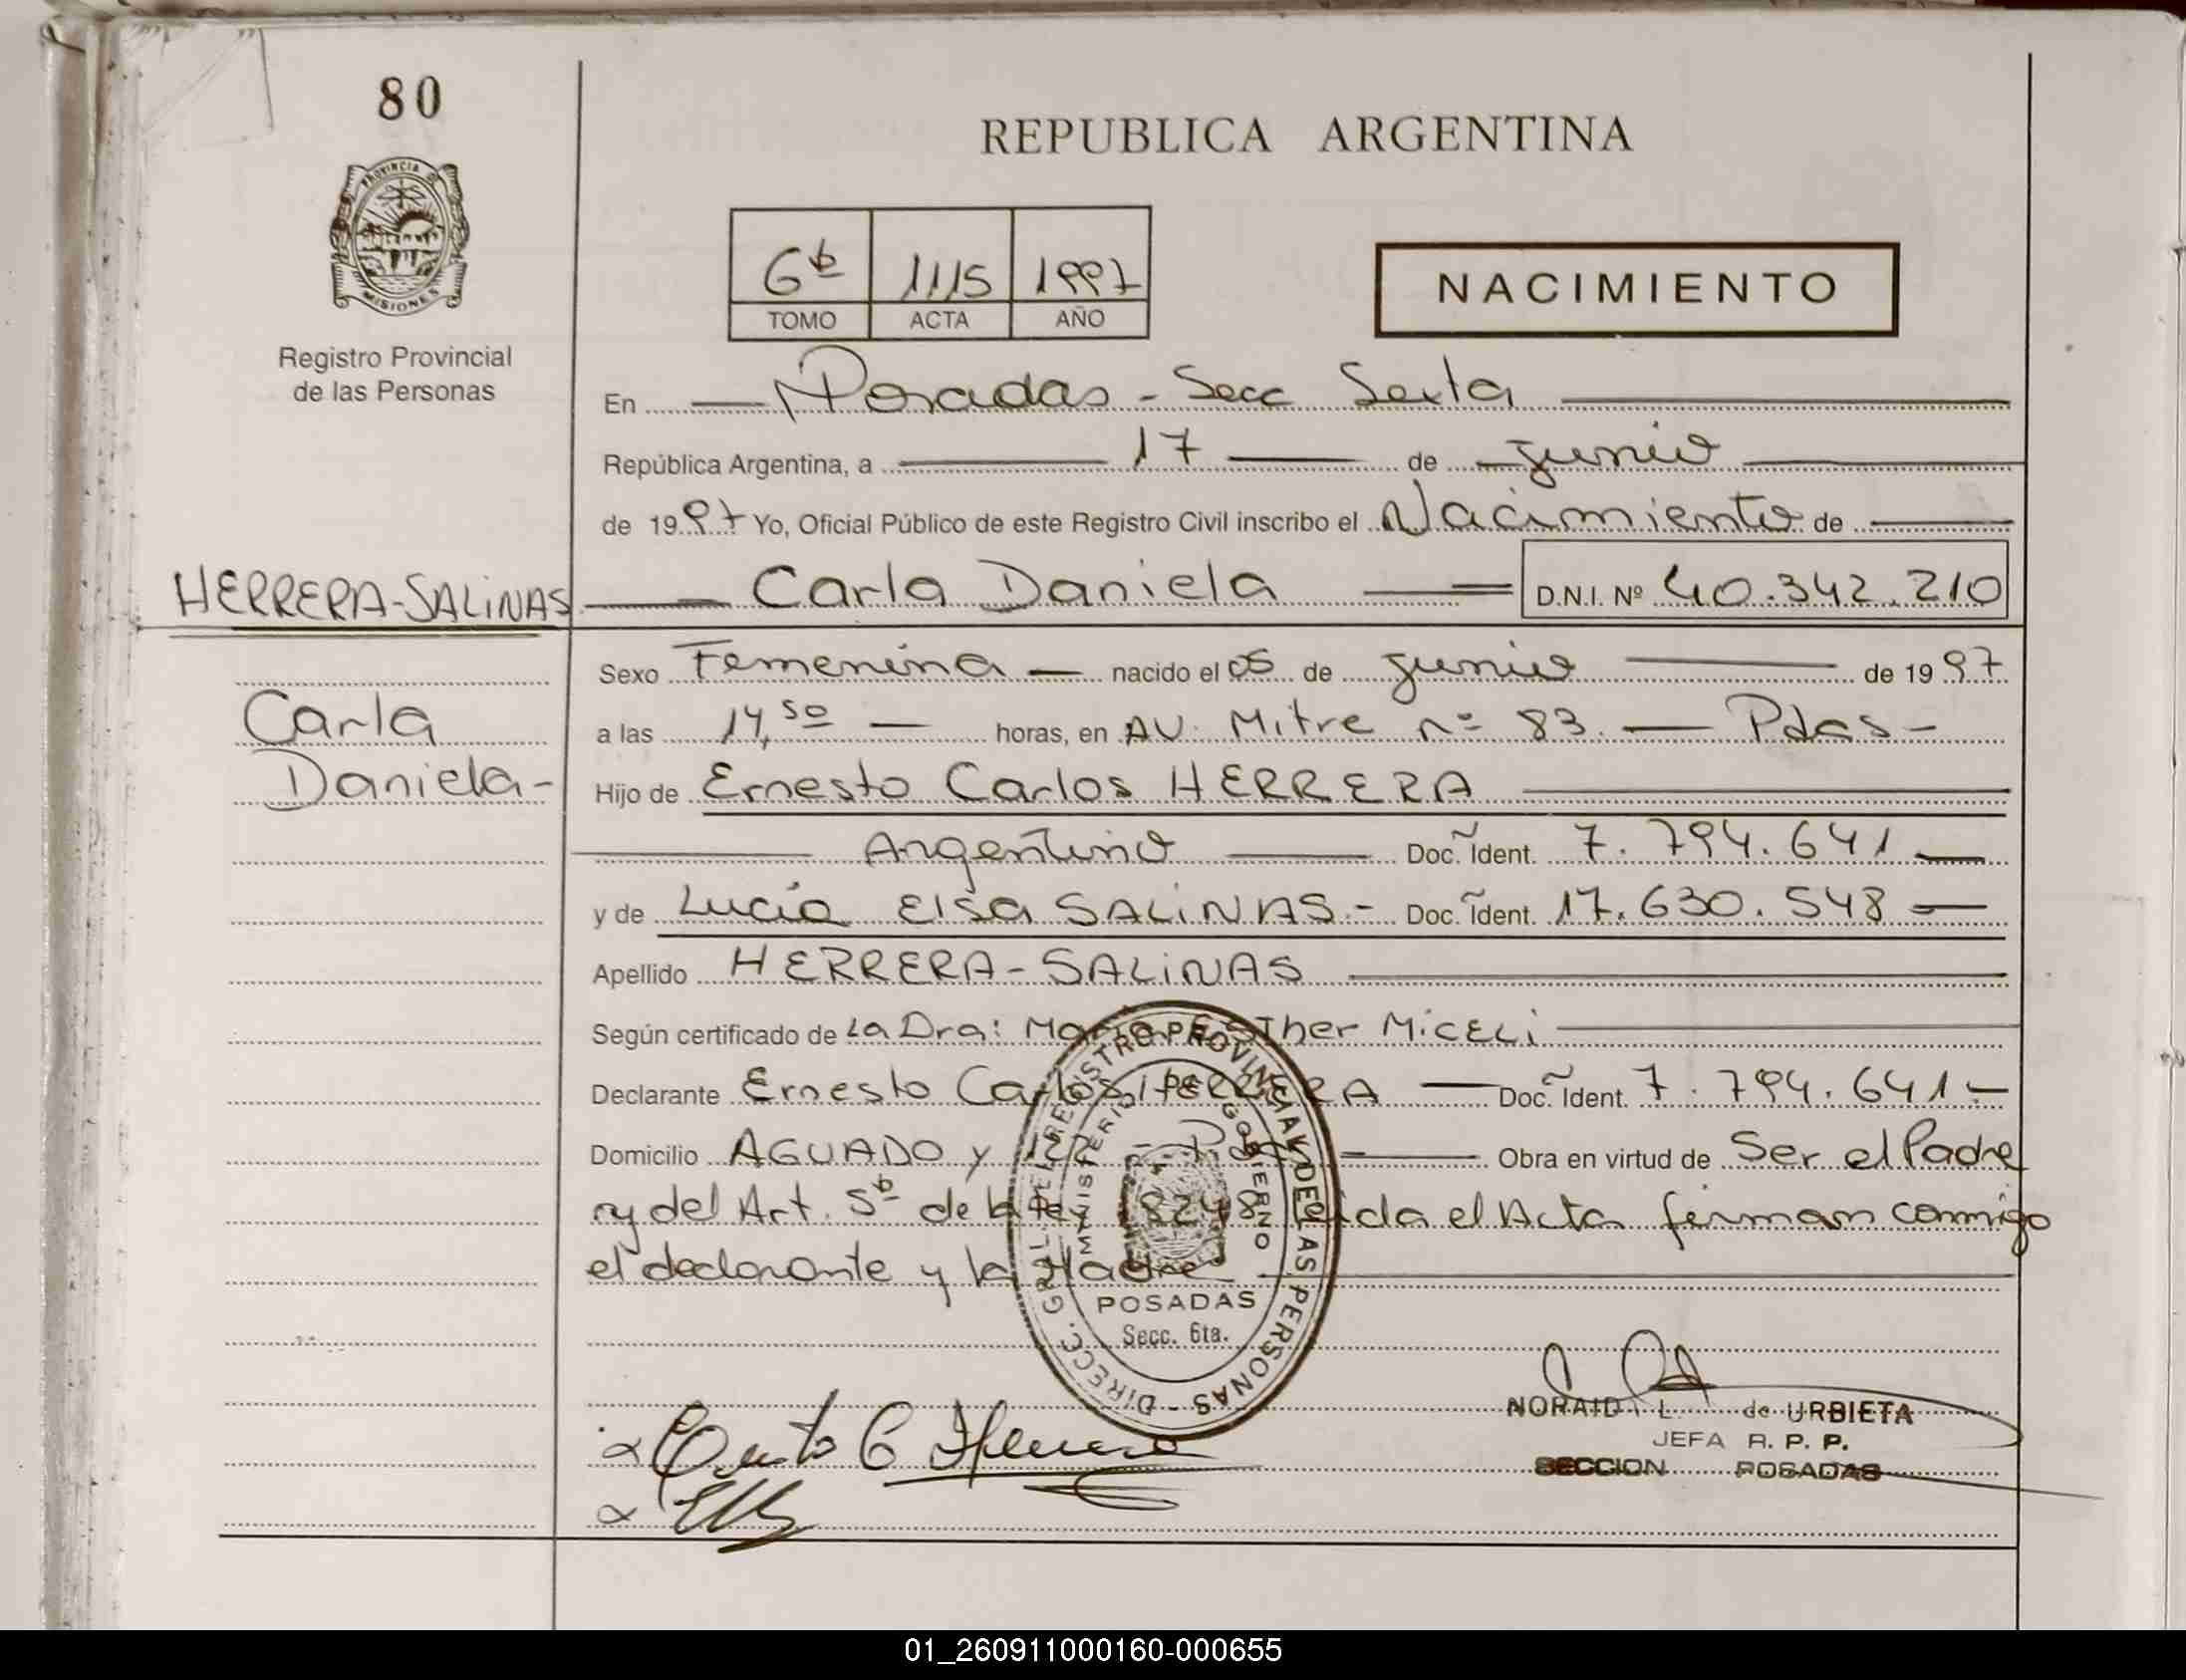 80
PROVINCIA D
MISIONES
Registro Provincial
de las Personas
REPUBLICA ARGENTINA
6ᵇ 1115 1997
TOMO ACTA AÑO
NACIMIENTO
En Posadas - Secc Sexta
República Argentina, a 17 de junio
de 1997 Yo, Oficial Público de este Registro Civil inscribo el Nacimiento de
HERRERA-SALINAS Carla Daniela D.N.I. Nº 40.342.210
Carla
Daniela-
Sexo Femenina nacido el 05 de junio de 1997
a las 14,50 horas, en AV. Mitre nº 83. Pdas-
Hijo de Ernesto Carlos HERRERA
Argentino Doc. Ident. 7.794.641
y de Lucía Elsa SALINAS.- Doc. Ident. 17.630.548
Apellido HERRERA-SALINAS
Según certificado de La Dra: María Esther MiCELi
Declarante Ernesto Carlos HERRERA Doc. Ident. 7.794.641-
Domicilio AGUADO y Obra en virtud de Ser el Padre
y del Art. 5ᵇ de la Ley 18248 leída el Acta firman conmigo
el declarante y la Madre
DIRECC. GRAL. DEL REGISTRO PROVINCIAL DE LAS PERSONAS
MINISTERIO GOBIERNO
POSADAS
Secc. 6ta.
Ernesto C Herrera
L. de URBIETA
JEFA R. P. P.
SECCION POSADAS
01_260911000160-000655